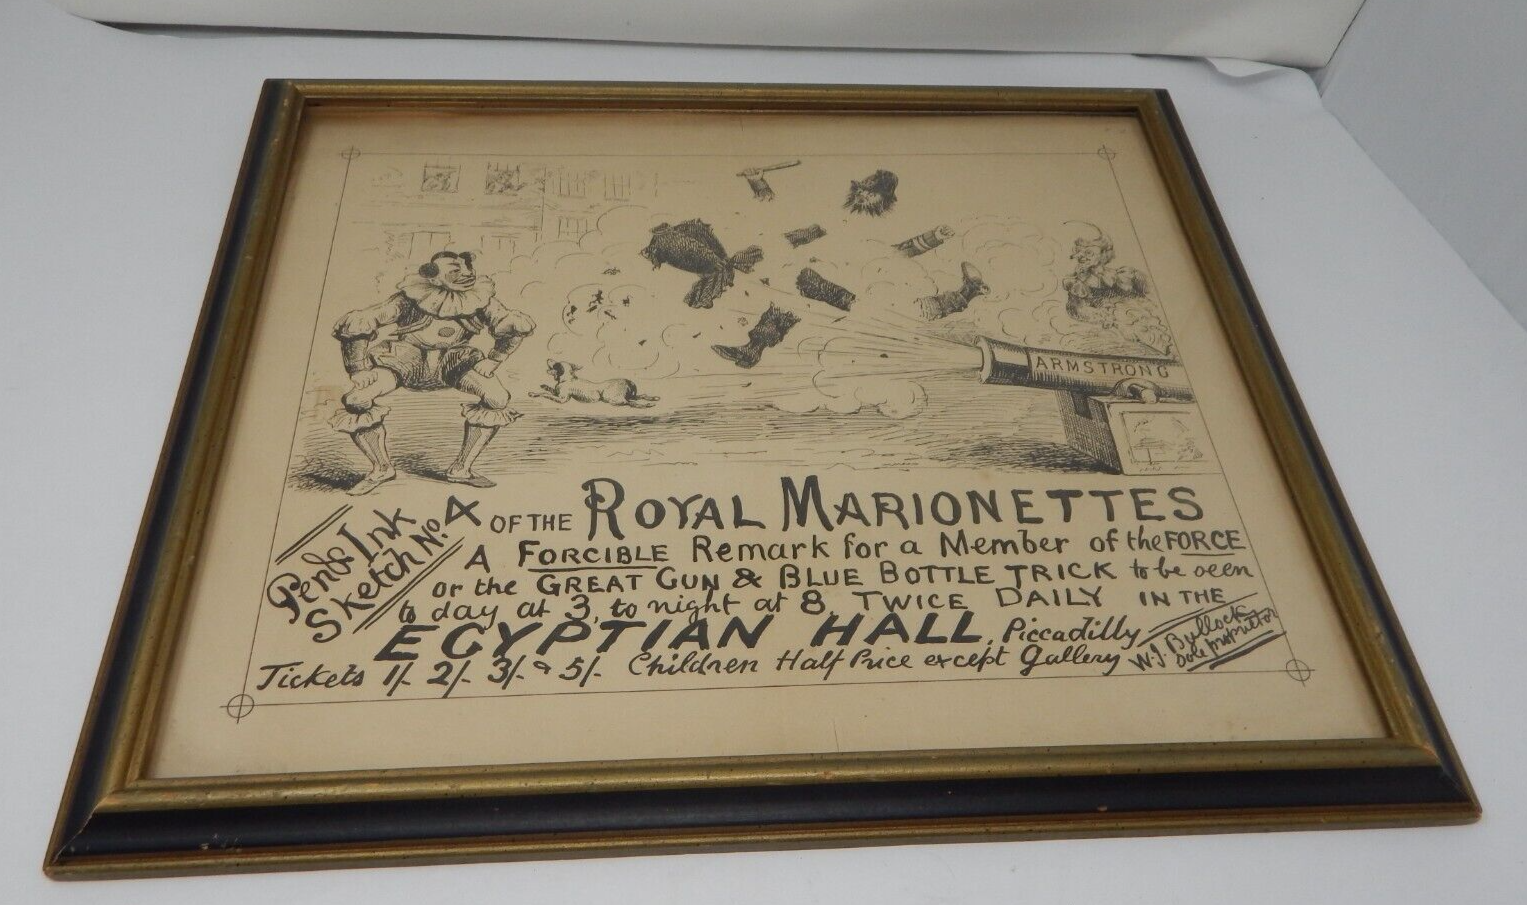 ARMSTRONG
Pen & Ink
Sketch No. 4 OF THE ROYAL MARIONETTES
A FORCIBLE Remark for a Member of the FORCE
or the GREAT GUN & BLUE BOTTLE TRICK to be seen
to day at 3, to night at 8, TWICE DAILY IN THE
EGYPTIAN HALL, Piccadilly
Tickets 1/- 2/- 3/- & 5/- Children Half Price except Gallery
W.J. Bullock
Sole